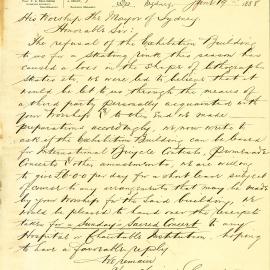 Sydney, April 19th 1888
His Worship the Mayor of Sydney
Honorable Sir:
The refusal of the Exhibition Building
to us for a skating rink this season has
caused a loss in the shape of Lithographs
Skates etc. We were led to believe that it would
be let to us through the means of
a third party personally acquainted with
your Worship & to this end we made
preparations accordingly, we now write to
ask if the Exhibition Building can be leased
for International Bicycle Contests, Promenade
Concerts & other amusements, we are willing
to give £600 per day for a short lease subject
of course to any arrangements that may be made
by your Worship for the said building, we
would be pleased to hand over the receipts
taken for a Sunday Sacred Concert to any
Hospital or Charitable Institution. hoping
to have a favorable reply
We remain